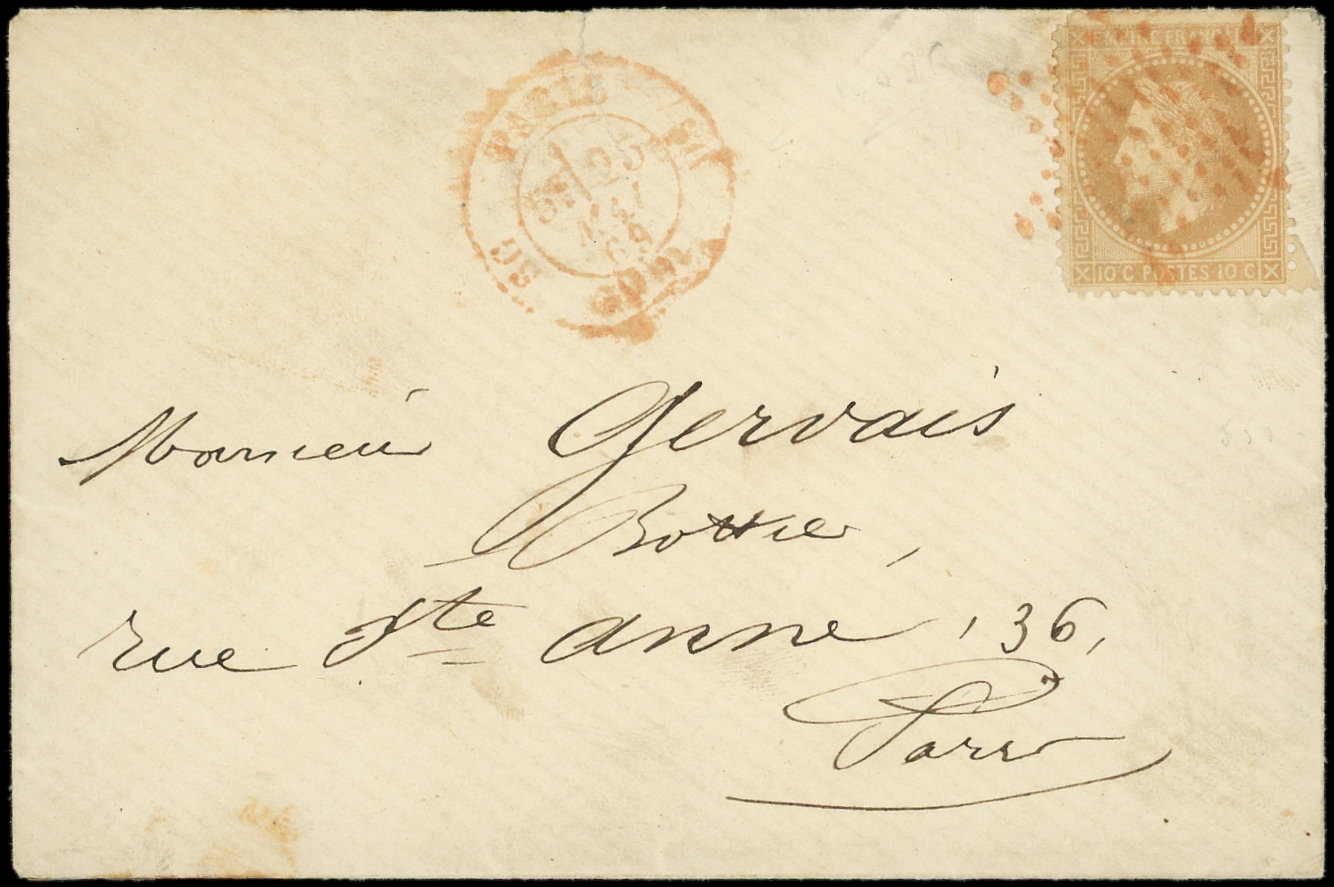 EMPIRE FRANC
10 C · POSTES · 10 C
PARIS
25
MAI
69
Monsieur Gervais
Bottier,
rue Ste anne, 36,
Paris